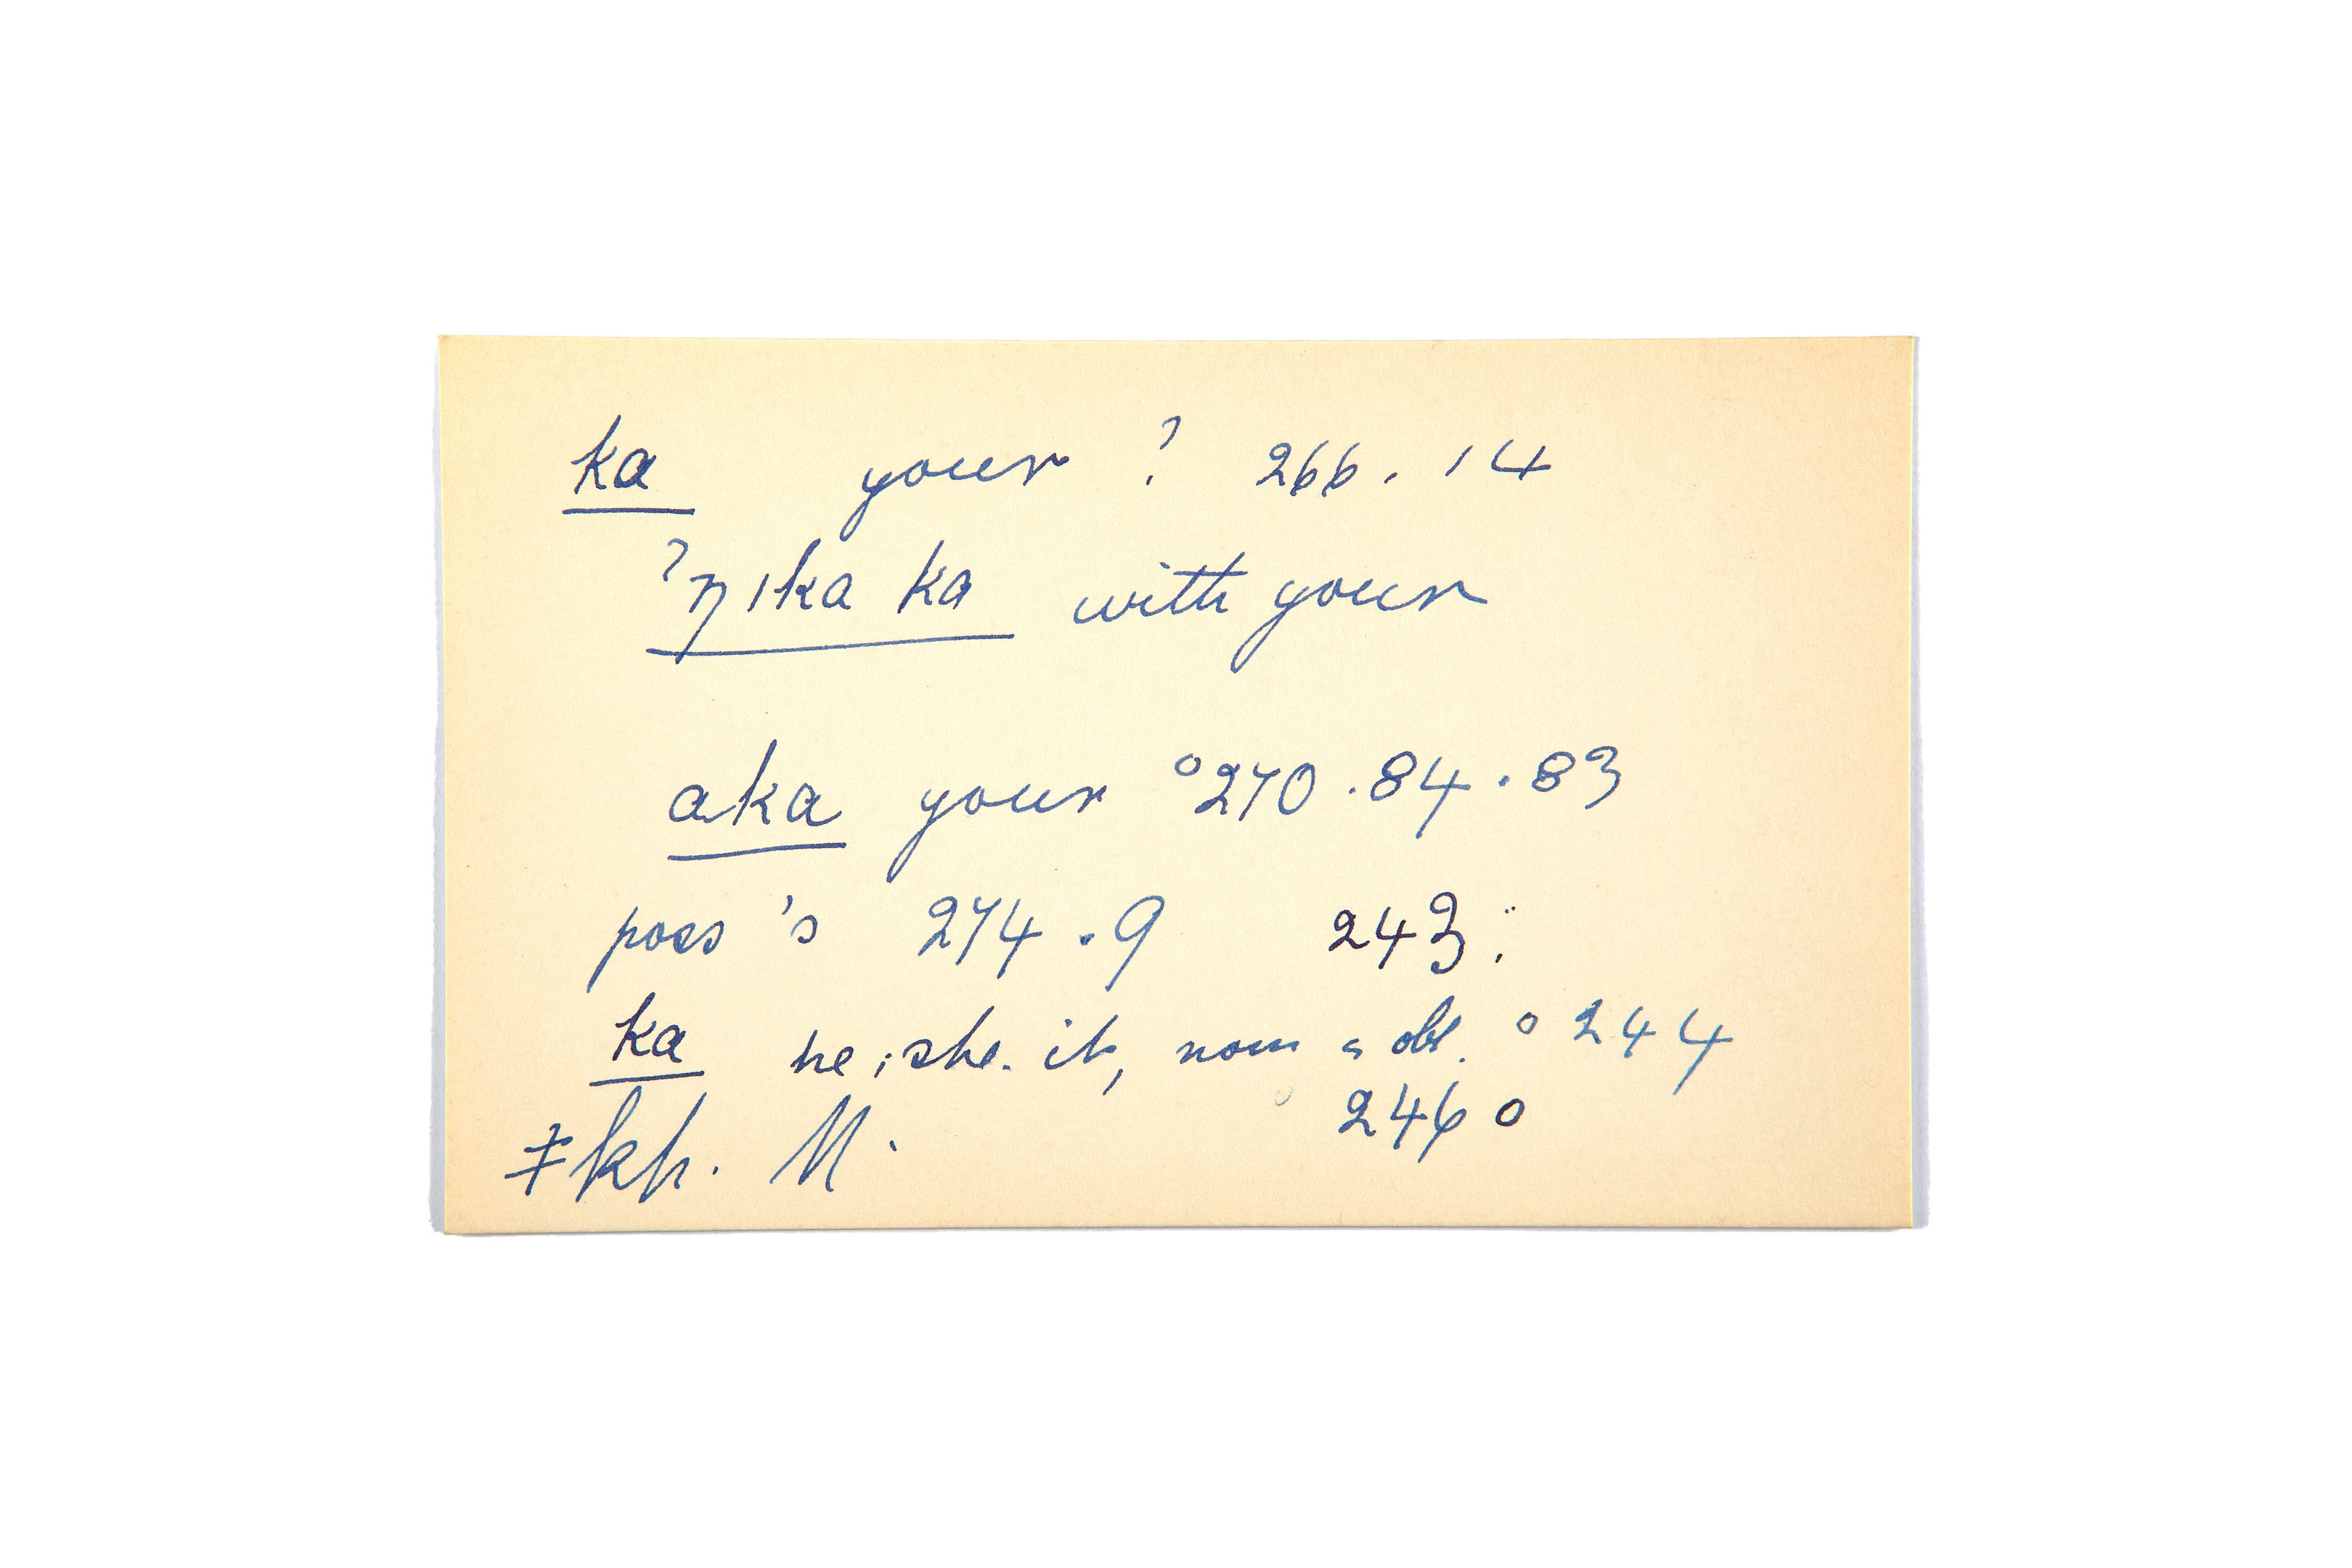 ka your ? 266. 14
ʔŋ ika ka with your
aka your °270 .84 .83
poss 's 274 .9 243 :
ka he, she. it, nom a obl. ° 244
246 o
≠ kh. M.